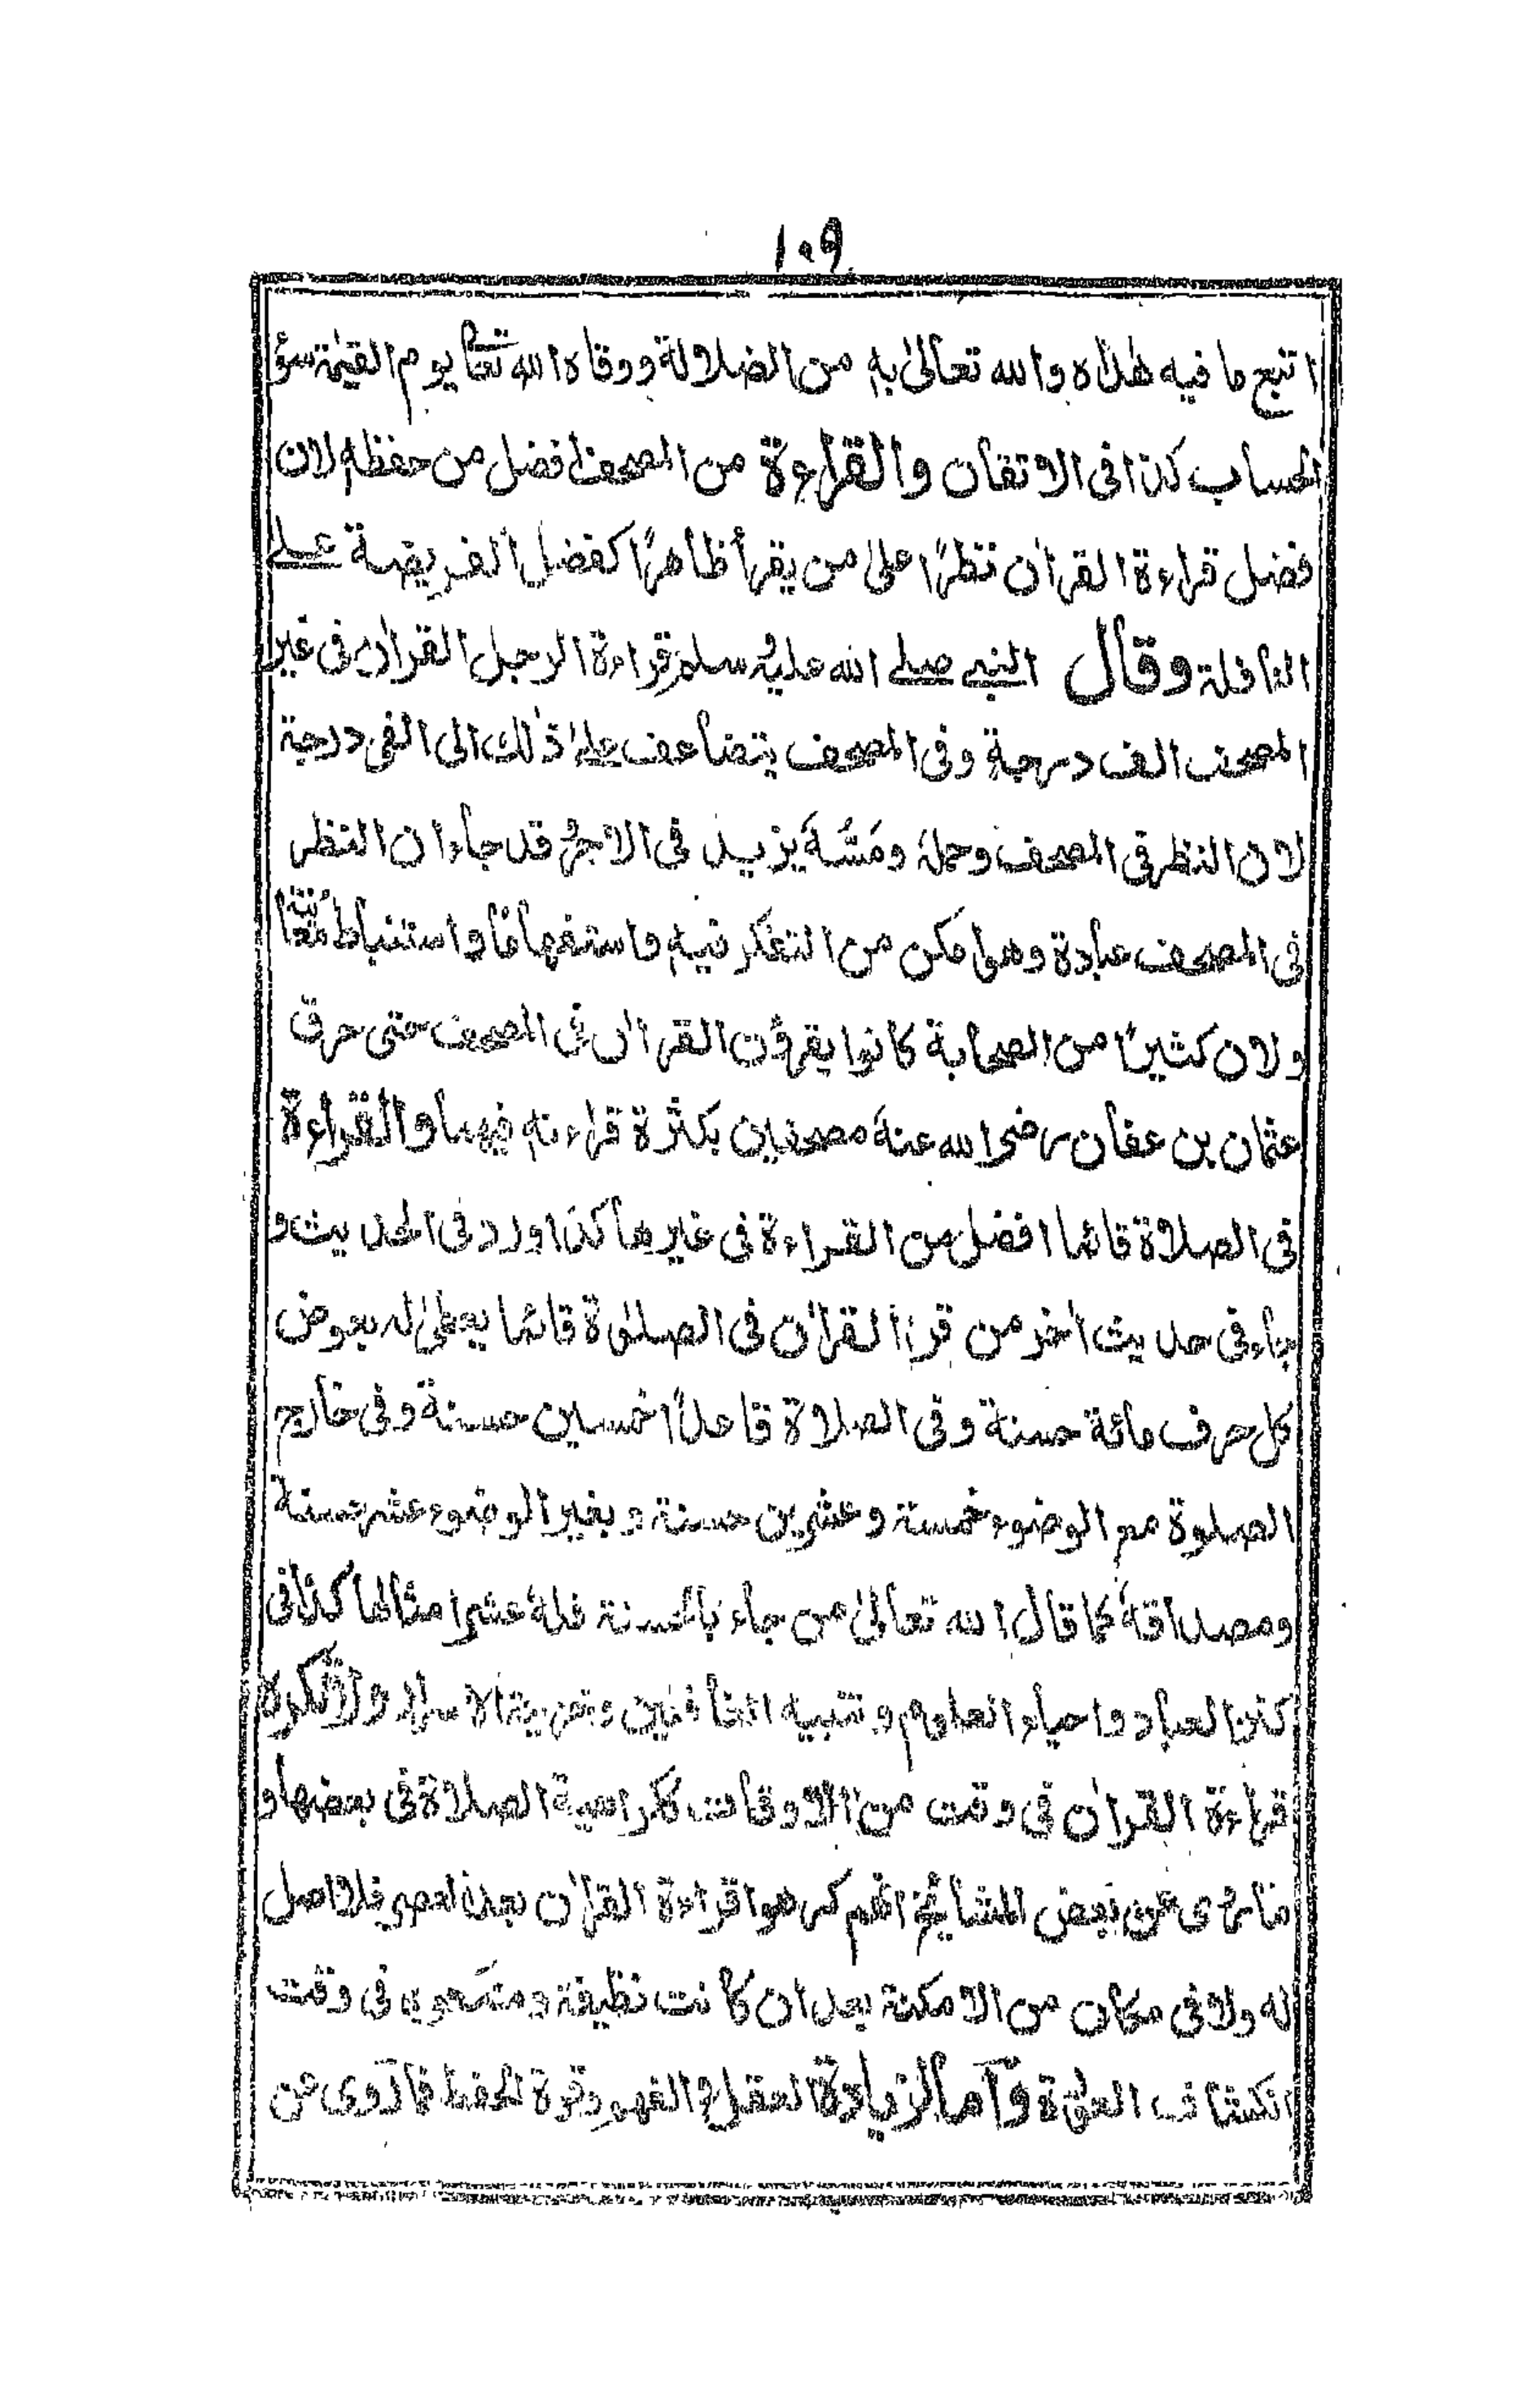 ١٠٩
اتبع ما فيه هداه والله تعالىٰ به من الضلالة ووقاه الله تعا يوم القيٰمة سؤ
الحساب كذا فى الاتقان والقراءة من المصحف افضل من حفظه لان
فضل قراءة القراٰن نظرًا علىٰ من يقرأ ظاهرًا كفضل الفريضة علے
النافلة وقال النبے صلے الله عليه وسلم قراءة الرجل القراٰن فى غير
المصحف الف درجة وفى المصحف يتضاعف علے ذٰلك الى الفى درجة
لان النظر فى المصحف وحمله ومَسَّه يزيد فى الاجر وقد جاء ان النظر
فى المصحف عبادة وهى امكن من التفكر فيه واستفهامًا واستنباط معانيه
ولان كثيرًا من الصحابة كانوا يقرؤن القراٰن فى المصحف حتى حرق
عثمان بن عفان رضى الله عنه مصحفين بكثرة قراءته فيهما والقراءة
فى الصلاة قائما افضل من القراءة فى غيرها كذا ورد فى الحديث و
جاء فى حديث اٰخر من قرأ القراٰن فى الصلوٰة قائما يعطىٰ له بعوض
كل حرف مائة حسنة وفى الصلاة قاعدًا خمسين حسنة وفى خارج
الصلوة مع الوضوء خمسة وعشرين حسنة وبغير الوضوء عشر حسنة
ومصداقه كما قال الله تعالىٰ من جاء بالحسنة فله عشر امثالها كذا فى
كنز العباد واحياء العلوم وتنبيه الغافلين ولا تكره
قراءة القراٰن فى وقت من الاوقات كراهية الصلاة فى بعضها و
ما روى عن بعض المشائخ انهم كرهوا قراءة القراٰن بعد العصر فلا اصل
له ولا فى مكان من الامكنة بعد ان كانت نظيفة فى وقت
انكشاف العورة وَاَما لزيادة العقل والفهم وقوة الحفظ فما روى عن